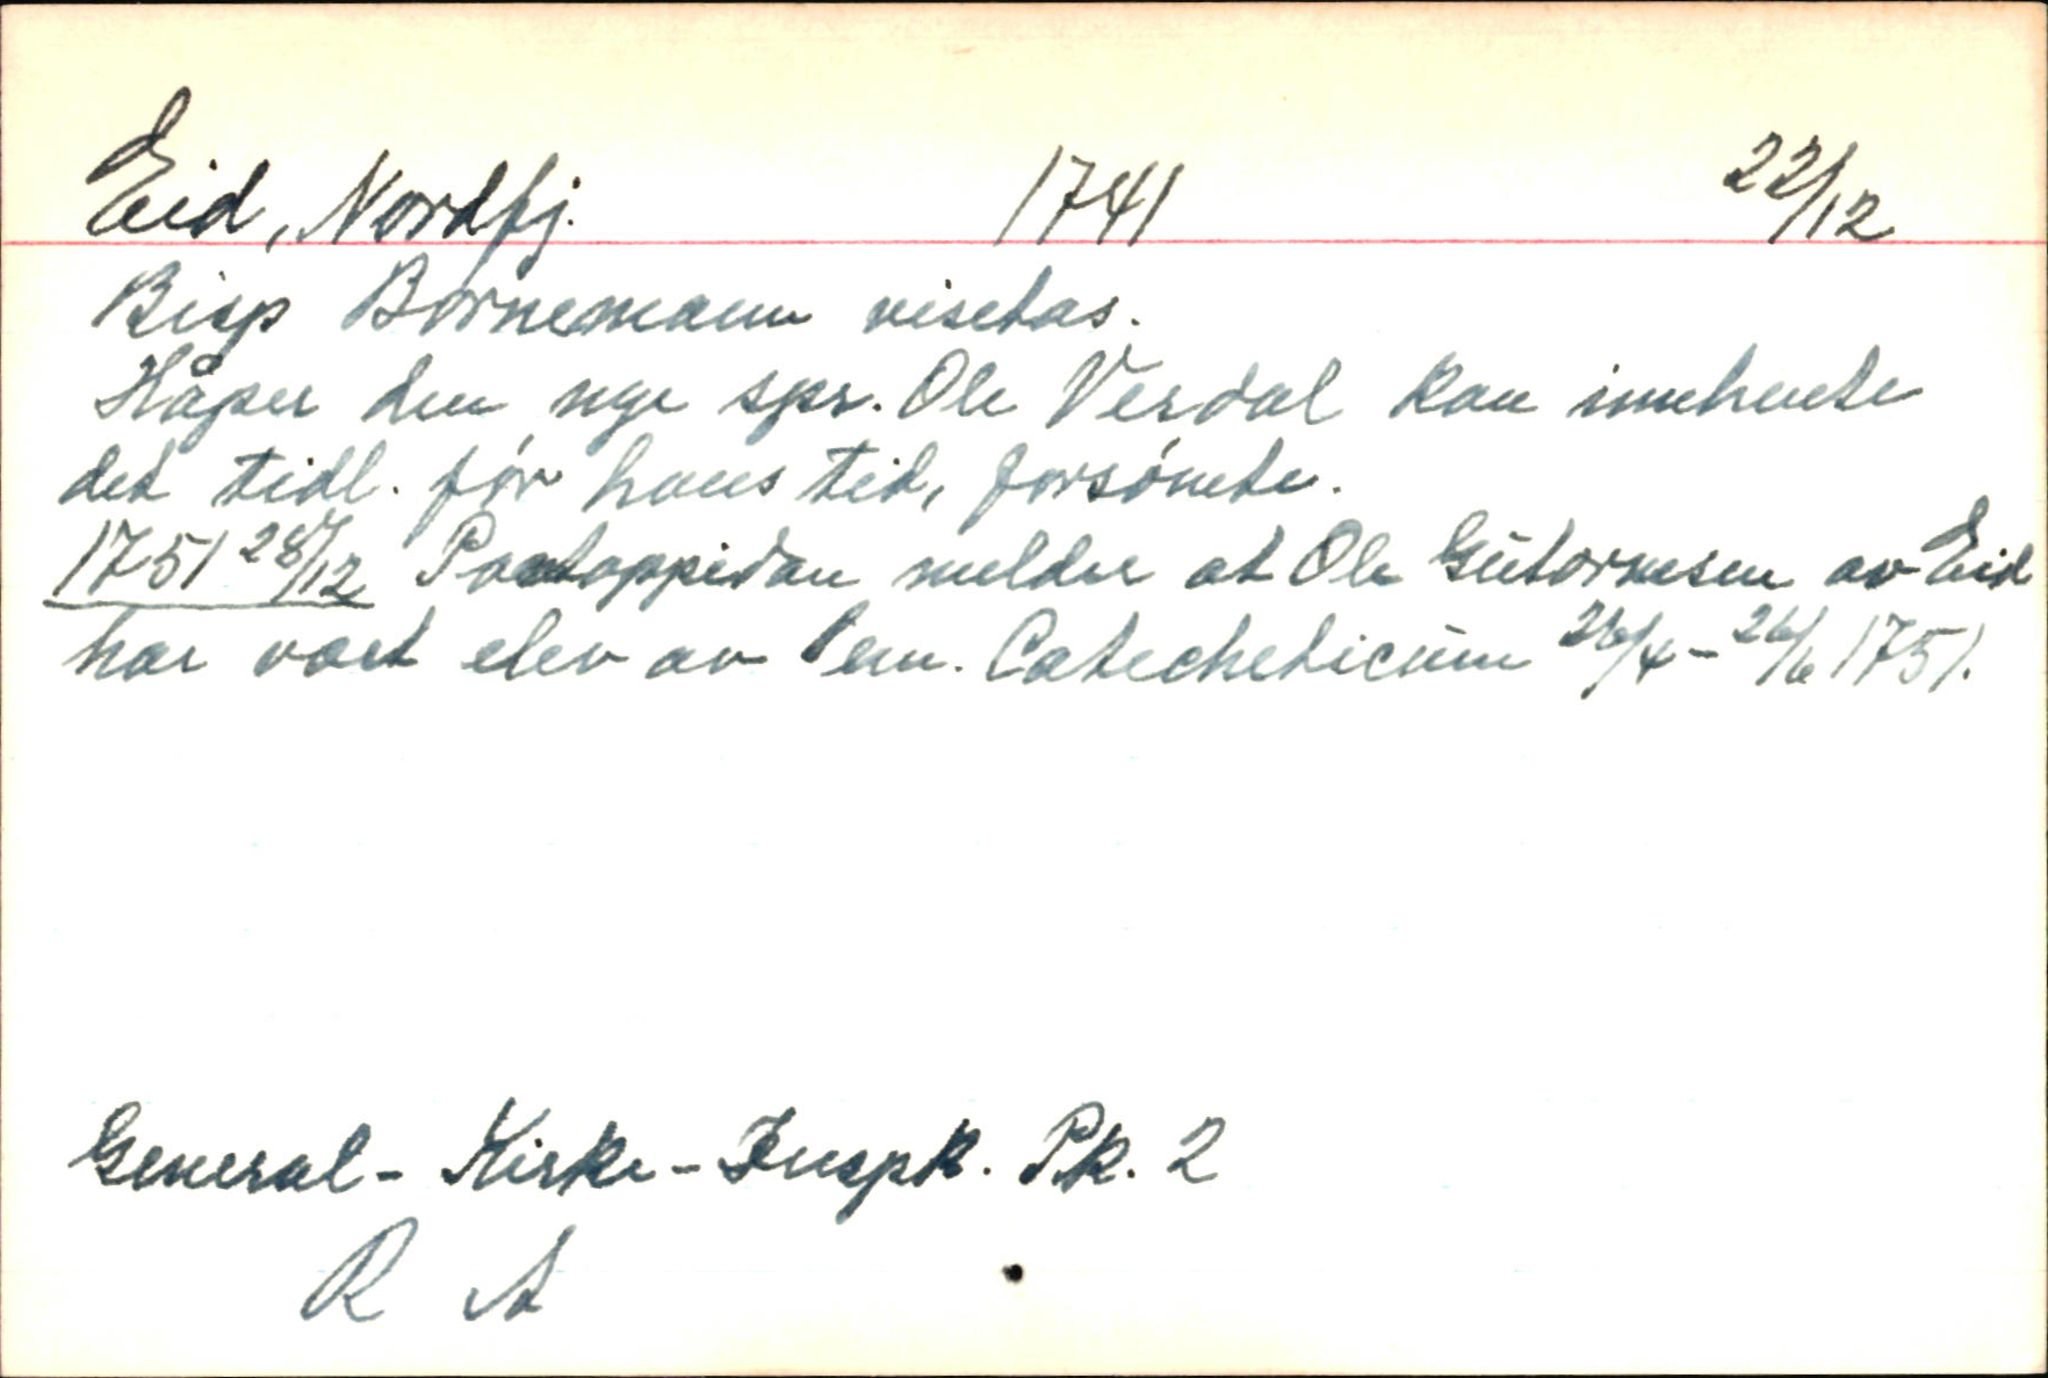 Eid, Nordfj. 1741 22/12
Bisp Bornemann visetas.
Håper den nye spr. Ole Verdal kan innhente
det tidl. før hans tid, forsømte.
1751 28/12 Pontoppidan melder at Ole Gutormsen av Eid
har vært elev av Sem. Catecheticum 26/4 - 26/6 1751.
General-Kirke-Inspk. Pk. 2
R A